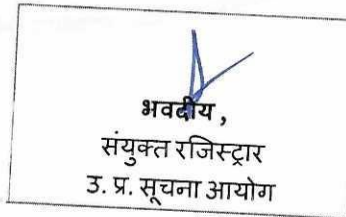 भवदीय ,
संयुक्त रजिस्ट्रार
उ. प्र. सूचना आयोग